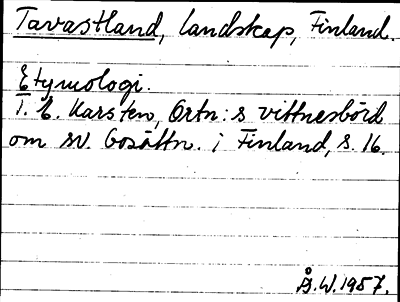 Tavastland, landskap, Finland.
Etymologi.
T. E. Karsten, Ortn:s vittnesbörd
om sv. bosättn. i Finland, s. 16.
Å.W.1957.